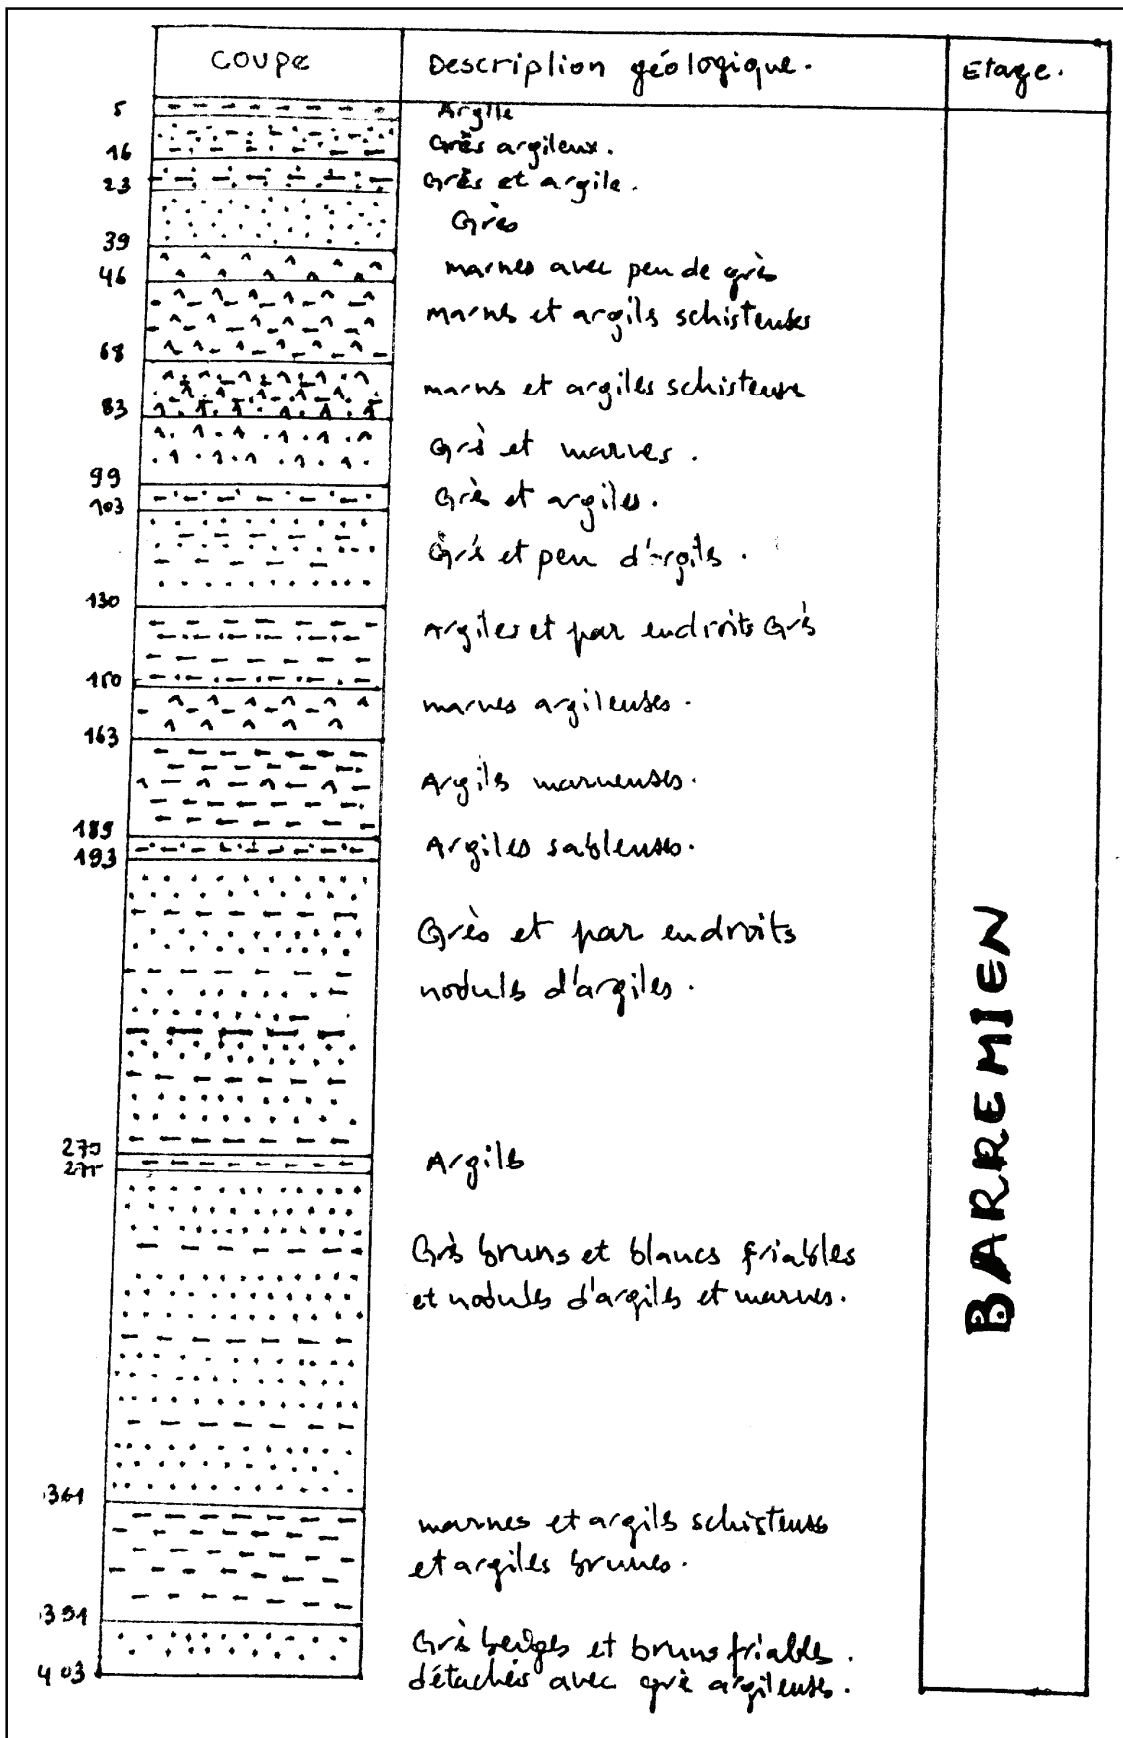 Coupe
Description géologique.
Etage.
5
Argile
Grès argileux.
16
Grès et argile.
23
Grès
39
marnes avec peu de grès
46
marns et argils schisteuses
68
marns et argiles schisteuse
83
Grès et marnes.
99
Grès et argiles.
103
Grès et peu d'argils.
130
Argiles et par endroits Grès
150
marnes argileuses.
163
Argils marneuses.
189
Argiles sableuses.
193
Grès et par endroits
noduls d'argiles.
270
Argils
275
Grès bruns et blancs friables
et nodules d'argiles et marnes.
361
marnes et argils schisteuses
et argiles brunes.
391
Grès beiges et bruns friables.
détachés avec grè argileuses.
403
BARREMIEN